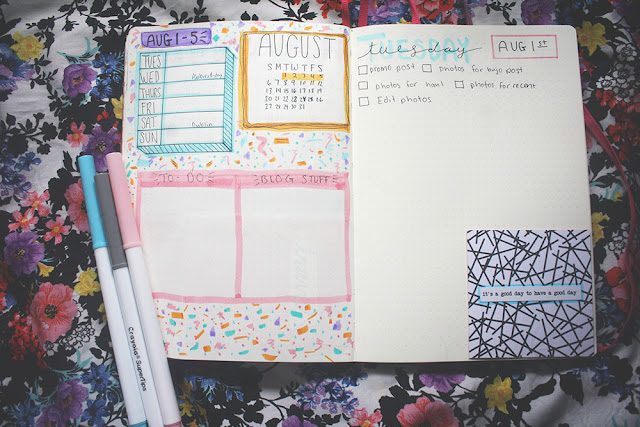 AUG 1-5
TUES
WED
THURS
FRI
SAT Dublin
SUN
AUGUST
S M T W T F S
1 2 3 4 5
6 7 8 9 10 11 12
13 14 15 16 17 18 19
20 21 22 23 24 25 26
27 28 29 30 31
TO-DO
BLOG STUFF
TUESDAY
tuesday
AUG 1ST
promo post photos for bujo post
photos for haul photos for recent
Edit photos
it's a good day to have a good day
Crayola SuperTips